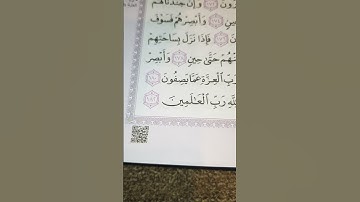 وَإِنَّ جُندَنَا لَهُمُ
حِينٍ وَأَبْصِرْهُمْ فَسَوْفَ
فَإِذَا نَزَلَ بِسَاحَتِهِمْ
عَنْهُمْ حَتَّىٰ حِينٍ وَأَبْصِرْ
رَبِّ ٱلْعِزَّةِ عَمَّا يَصِفُونَ
لِلَّهِ رَبِّ ٱلْعَٰلَمِينَ